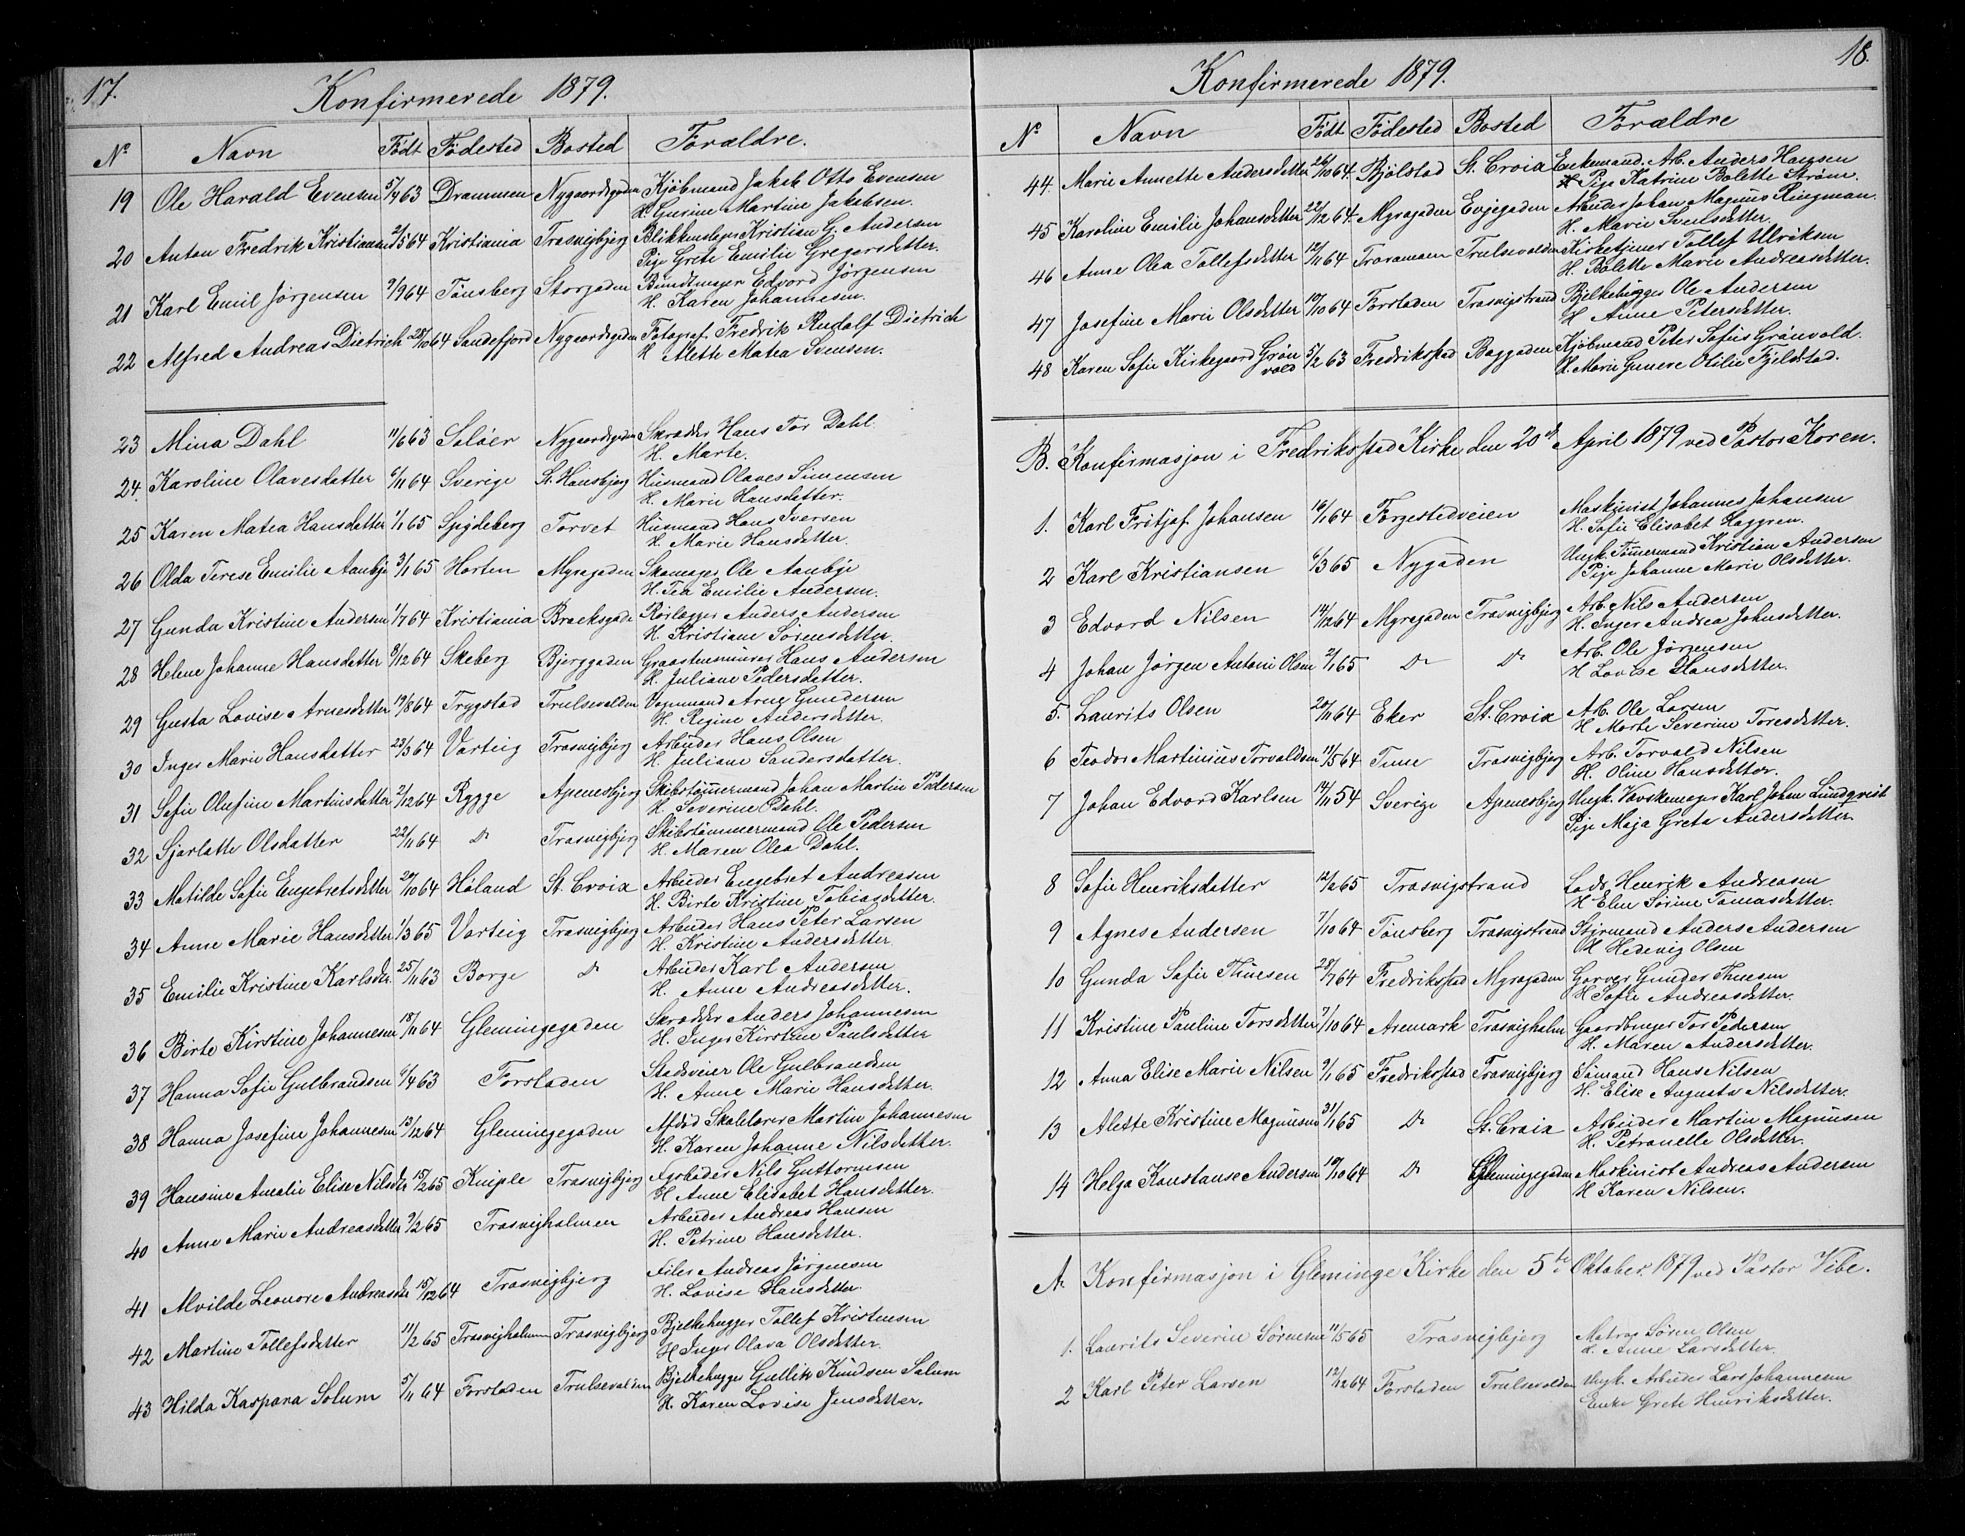 17.
Konfirmerede 1879.
No Navn Født Fødested Bosted Forældre.
19 Ole Harald Evensen 5/4 63 Drammen Nygaardsgaden Kjøbmand Jakob Otto Evensen
H. Gurine Martine Jakobsen.
20 Anton Fredrik Kristiansen 2/5 64 Kristiania Trosvigbjerg Blikkenslager Kristian G. Andersen
Pige Grete Emilie Gregersdatter.
21 Karl Emil Jørgensen 7/9 64 Tønsberg Storgaden Bundtmager Edvord Jørgensen
H. Karen Johannesen.
22 Alfred Andreas Dietrich 28/10 64 Sandefjord Nygaardsgaden Fotograf Fredrik Rudolf Dietrich
H. Alette Matea Svensen.
23 Mina Dahl 11/6 63 Soløer Nygaardsgaden Skrædder Hans Tor Dahl.
H. Marte.
24. Karoline Olavesdatter 6/11 64 Sverige St. Hansbjerg Husmand Olaves Simensen
H. Marie Hansdatter.
25 Karen Matea Hansdatter 1/1 65 Spydeberg Torvet Husmand Hans Iversen
H. Marie Hansdatter.
26 Olda Terese Emilie Aanbje 3/1 65 Horten Myragaden Skomager Ole Aanbje
H. Tea Emilie Andersen.
27 Gunda Kristine Andersen 1/7 64 Kristiania Brocksgade Rørlægger Anders Andersen
H. Kristiane Sørensdatter.
28 Helene Johanne Hansdatter 8/12 64 Skeberg Bjerggaden Graastensmurer Hans Andersen
H. Juliane Pedersdatter.
29 Gusta Lovise Arnesdatter 19/8 64 Trygstad Trulsevolden Vognmand Arne Gundersen
H. Regine Andersdatter.
30 Inger Marie Hansdatter 23/3 64 Varteig Trosvigbjerg Arbeider Hans Olsen
H. Juliane Sandersdatter.
31 Sofie Olufine Martinsdatter 2/12 64 Rygge Apenesbjerg Skibstømmermand Johan Martin Pedersen
H. Severine Dahl.
32 Sjarlotte Olsdatter 22/11 64 do Trosvigbjerg Skibstømmermand Ole Pedersen
H. Maren Olea Dahl.
33 Matilde Sofie Engebretsdatter 20/10 64 Høland St. Croix Arbeider Engebret Andreasen
H. Birte Kristine Tobiasdatter.
34 Anne Marie Hansdatter 1/3 65 Varteig Trosvigbjerg Arbeider Hans Peter Larsen
H. Kristine Andersdatter.
35 Emilie Kristine Karlsdtr. 25/11 63 Borge do Arbeider Karl Andersen
H. Anne Andreasdatter.
36 Birte Kirstine Johannesen 18/11 64 Glemingegaden Skrædder Anders Johannesen
H. Inger Kirstine Paulsdatter
37 Hanna Sofie Gulbrandsen 6/4 63 Forstaden Stadsveier Ole Gulbrandsen
H. Anne Marie Hansdatter.
38 Hanna Josefine Johannesen 13/12 64 Glemingegaden Afdød Skolelærer Martin Johannesen
H. Karen Johanne Nilsdatter.
39 Hansine Amalie Elise Nilsdtr 15/2 65 Kniple Trosvigbjerg Nils Guttormsen
H Anne Elisabet Hansdatter.
40 Anne Marie Andreasdatter 9/2 65 Trosvigholmen Arbeider Andreas Hansen
H. Petrine Hansdatter.
41 Alvilde Leonore Andreasdtr 15/12 64 Trosvigbjerg Filer Andreas Jørgensen
H. Lovise Hansdatter.
42 Martine Tollefsdatter 11/2 65 Trosvigholmen Trosvigbjerg Bjelkehugger Tollef Kristensen
H Inger Olava Olsdatter.
43 Hilda Kaspara Solum 5/11 64 Forstaden Trulsevolden Bjelkehugger Gullik Knudsen Solum
H. Karen Lovise Jensdatter.
18.
Konfirmerede 1879.
No Navn Født Fødested Bosted Forældre
44. Marie Annette Andersdatter 26/10 64. Bjølstad St. Croix Enkemand. Arb. Anders Hansen
Pige Katrine Bolette Strøm.
45 Karoline Emilie Johansdatter 22/12 64. Myragaden Evjegaden Arbeider Johan Magnus Ringman.
H. Marie Svensdatter.
46 Anne Olea Tollefsdatter 12/11 64 Traramoen Trulsevolden Kirketjener Tollef Ulriksen
H. Bolette Marie Andreasdatter.
47 Josefine Marie Olsdatter 10/10 64 Forstaden Trosvigstrand Bjelkehugger Ole Andersen
H Anne Petersdatter.
48 Karen Sofie Kirkegaard Grøn
vold 5/2 63 Fredrikstad Baggaden Kjøbmand Peter Sofus Grønvold
H. Marie Gunere Otilie Fjeldstad.
B. Konfirmasjon i Fredrikstad Kirke den 20de April 1879 ved Pastor Koren.
1. Karl Fritjof Johansen 16/1 64 Torgestedveien Maskinist Johannes Johansen
H. Sofie Elisabet Haggren.
2 Karl Kristiansen 6/3 65 Nygaden Ungk. Tømmermand Kristian Andersen
Pige Johanne Marie Olsdatter.
3 Edvord Nilsen 14/12 64 Myragaden Trosvigbjerg Arb. Nils Andersen
H. Inger Andrea Johnsdatter.
4 Johan Jørgen Anton Olsen 2/1 65 do do Arb. Ole Jørgensen
H Lovise Hansdatter.
5. Laurits Olsen 20/11 64 Eker St. Croix Arb. Ole Larsen
H Marte Severine Toresdatter.
6 Teodor Martinius Torvaldsen 11/5 64 Tune Trosvigbjerg Arb. Torvald Nilsen
H. Oline Hansdatter.
7 Johan Edvord Karlsen 14/11 54 Sverige Apenesbjerg Ungk. Vævskemager Karl Johan Lundqvist
Pige Maja Greta Andersdatter.
8 Sofie Henriksdatter 12/2 65 Trosvigstrand Lods. Henrik Andreasen
H Elen Sørine Tomasdatter.
9 Agnes Andersen 7/10 64 Tønsberg Trosvigstrand Styrmand Anders Andersen
H Hedevig Olsen
10 Gunda Sofie Thuesen 28/7 64 Fredrikstad Myragaden Garver Gunder Thuesen
H Sofie Andreasdatter.
11 Kristine Pauline Torsdatter 7/10 64 Aremark Trosvigholm Gaardbruger Tor Pedersen
H. Maren Andersdatter.
12 Anna Elise Marie Nilsen 9/1 65 Fredrikstad Trosvigbjerg Sømand Hans Nilsen
H. Elise Augusta Nilsdatter.
13 Alette Kristine Magnusen 31/1 65 do St. Croix Arbeider Martin Magnusen
H. Petronelle Olsdatter.
14 Helga Konstanse Andersen 19/10 64 do Glemingegaden Maskinist Andreas Andersen
H Karen Nilsen.
A. Konfirmasjon i Gleminge Kirke den 5te Oktober 1879 ved Pastor Vibe.
1. Laurits Severin Sørensen 11/5 65 Trosvigbjerg Matros Søren Olsen
H. Anne Larsdatter.
2 Karl Peter Larsen 12/12 64 Forstaden Trulsevolden Ungk. Arbeider Lars Johannesen
Enke Grete Henriksdatter.